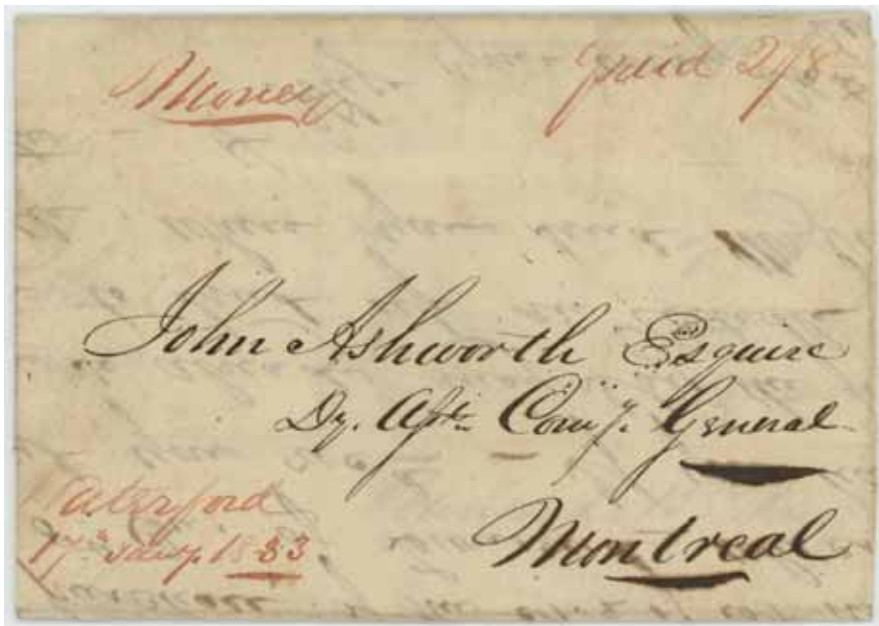 Money
paid 2/8
John Ashworth Esquire
Dy. Asst. Comy. General
Montreal
Waterford
17th Jany. 1833